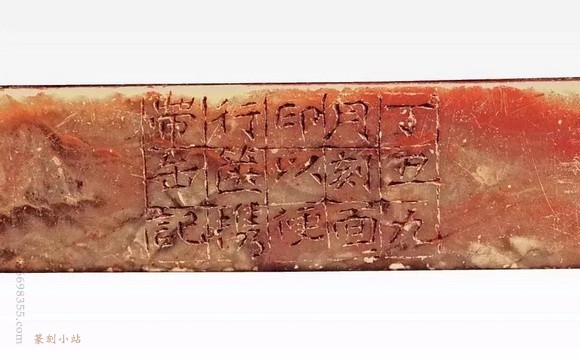 丁丑九
月刻面
印以便
行篋攜
帶缶記
698355.com
篆刻小站